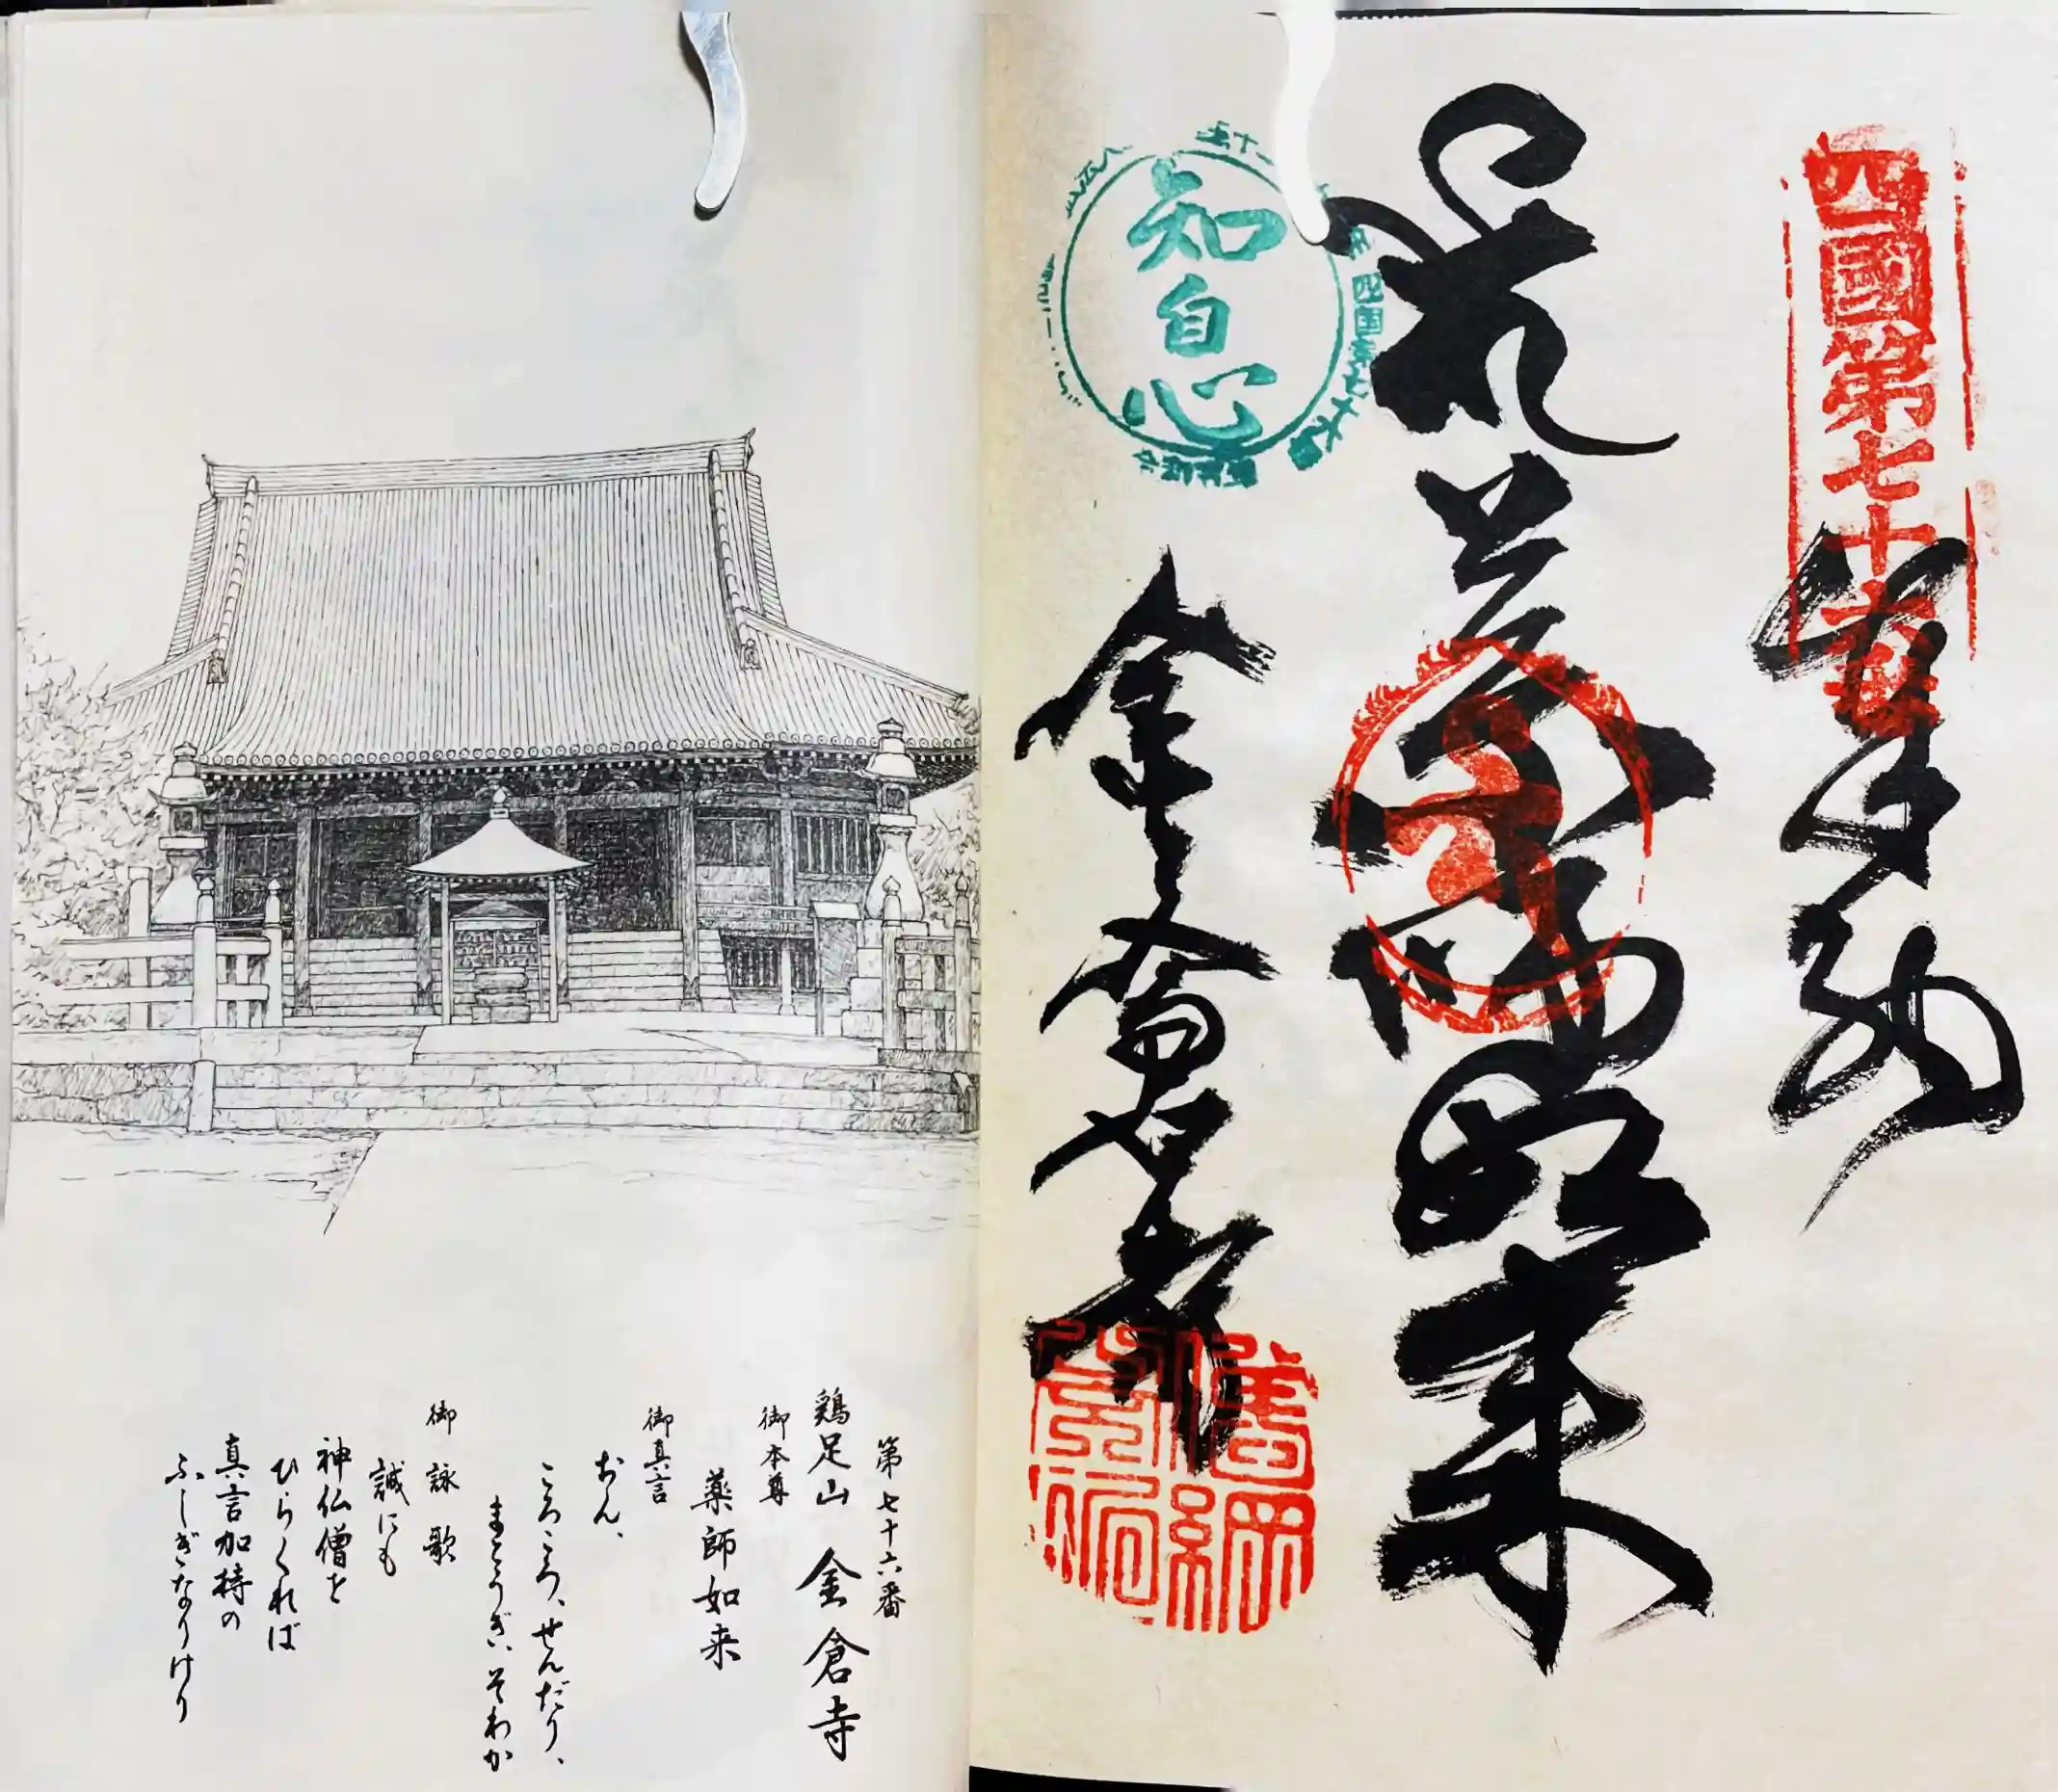 四國第七十六番
奉納
薬師如来
知自心
金倉寺
第七十六番
鶏足山 金倉寺
御本尊
薬師如来
御真言
おん、
ころころ、せんだり、
まとうぎ、そわか
御詠歌
誠にも
神仏僧を
ひらくれば
真言加持の
ふしぎなりけり